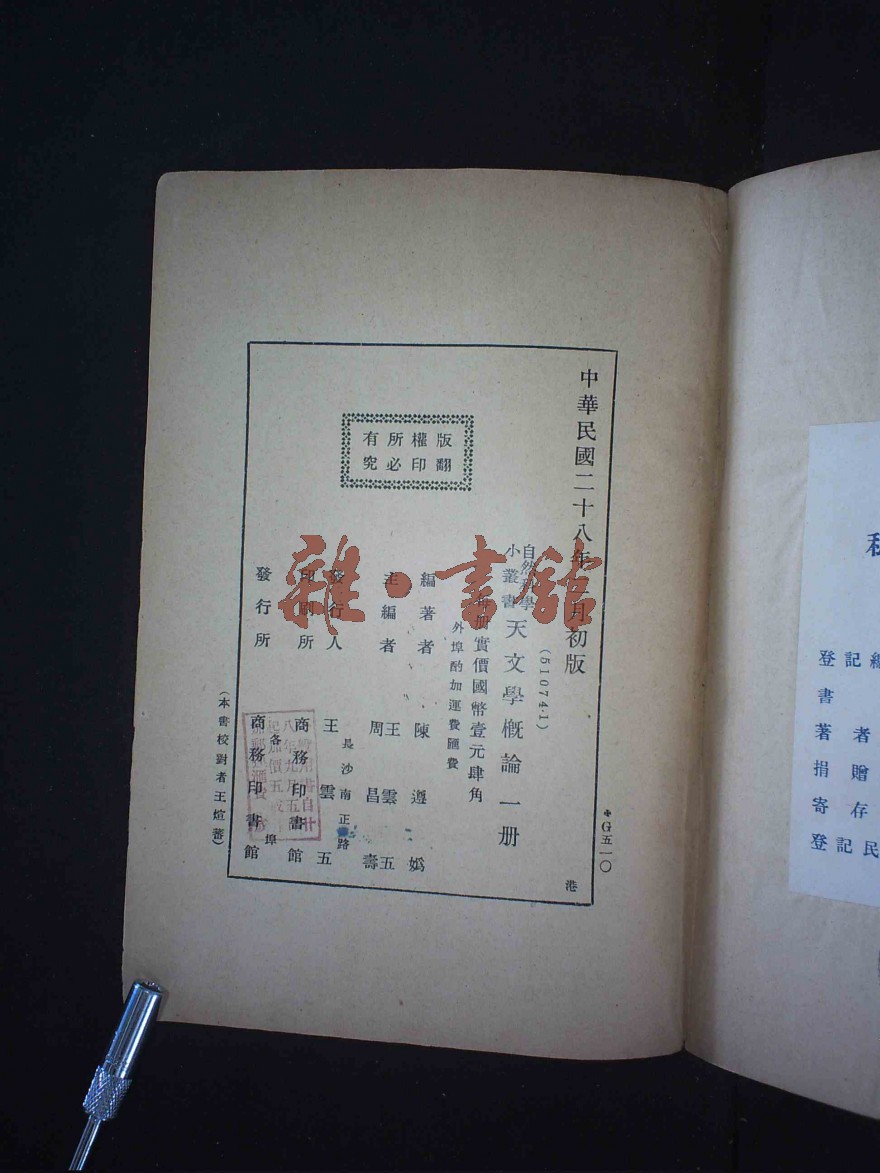 中華民國二十八年二月初版
✤G五一〇
港
(51074·1)
自然科學
小叢書
天文學概論一册
每册實價國幣壹元肆角
外埠酌加運費匯費
版權所有
翻印必究
編著者 陳遵嬀
主編者 王雲五
周昌壽
發行人 王雲五
長沙南正路
印刷所 商務印書館
各埠
發行所 商務印書館
(本書校對者王煊蕃)
雜·書館
登記
書
著者
捐贈
寄存
登記民